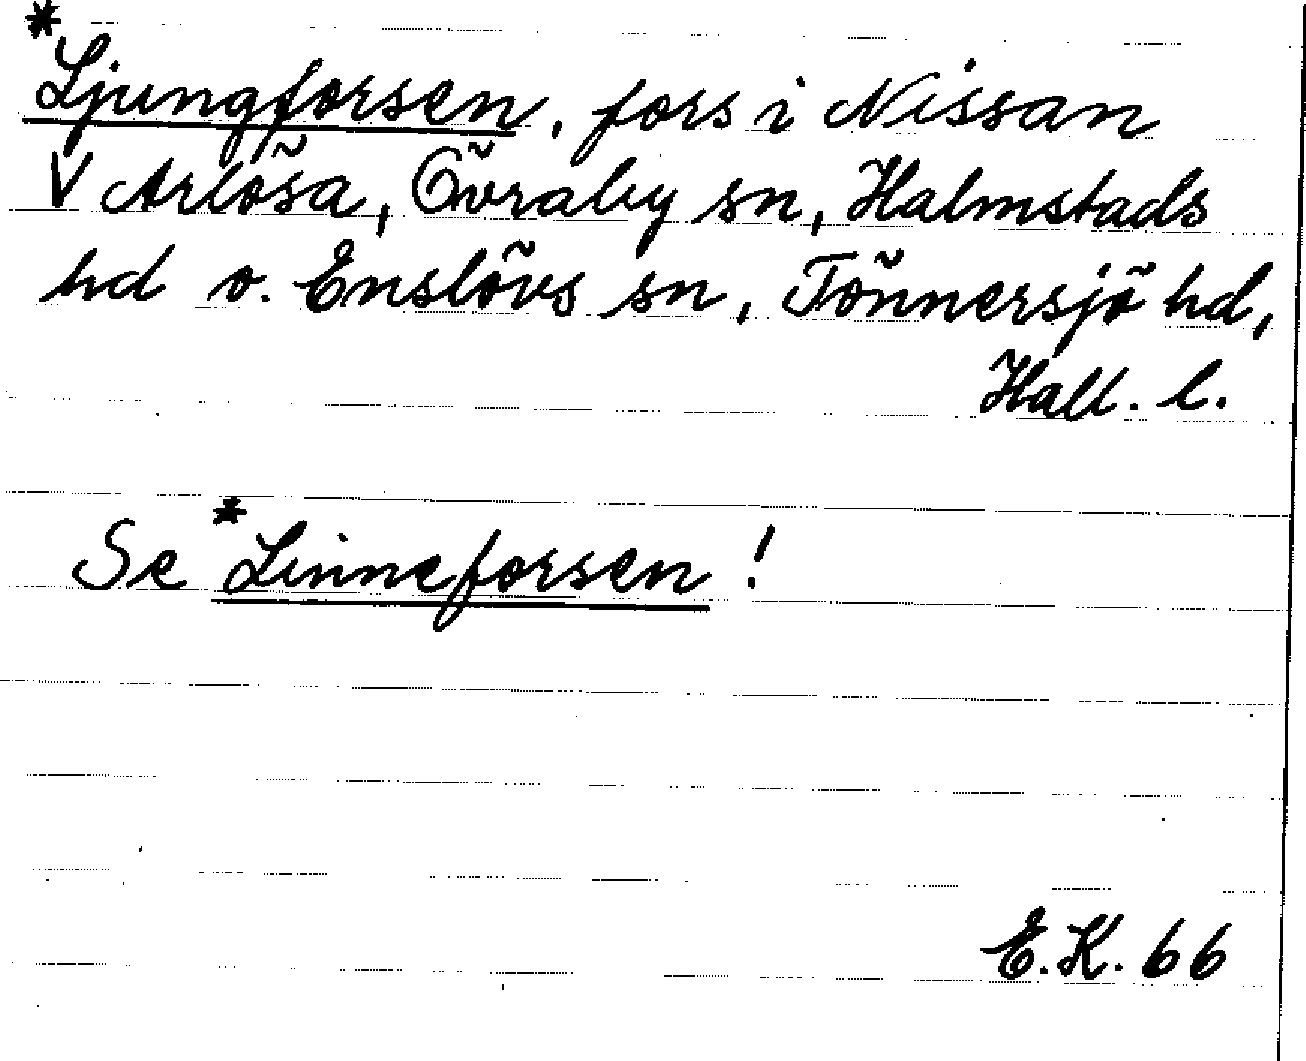 *Ljungforsen, fors i Nissan
V Arlösa, Övraby sn, Halmstads
hd o. Enslövs sn, Tönnersjö hd,
Hall. l.
Se *Linneforsen!
E.K. 66